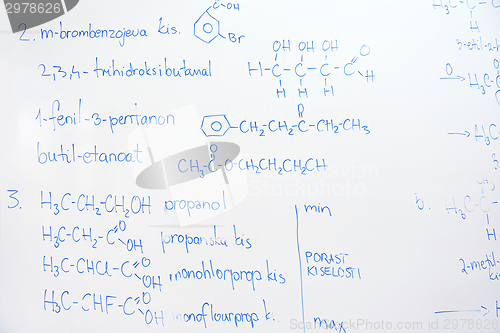 2. m-brombenzojeva kis.
OH
Br
2,3,4-trihidroksibutanal
OH OH OH O
H-C-C-C-C
H H H H
1-fenil-3-pentanon
O
-CH2-CH2-C-CH2-CH3
butil-etanoat
O
CH3-C-O-CH2CH2CH2CH
3. H3C-CH2-CH2OH propanol
H3C-CH2-C O OH propanska kis
H3C-CHCl-C O OH monohlorprop kis
H3C-CHF-C O OH monoflourprop k.
min
PORAST
KISELOSTI
max
2-metil-
© Creatas Images
2978626